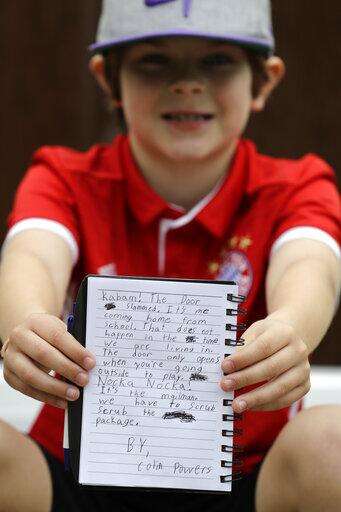 Kabam! The Door
slammed. It's me
coming home from
school. That does not
happen in the time
we are living in.
The door only opens
when you're going
outside to play.
Nocka Nocka!
It's the mailman.
we have to scrub
scrub the
package.
BY,
Colin Powers